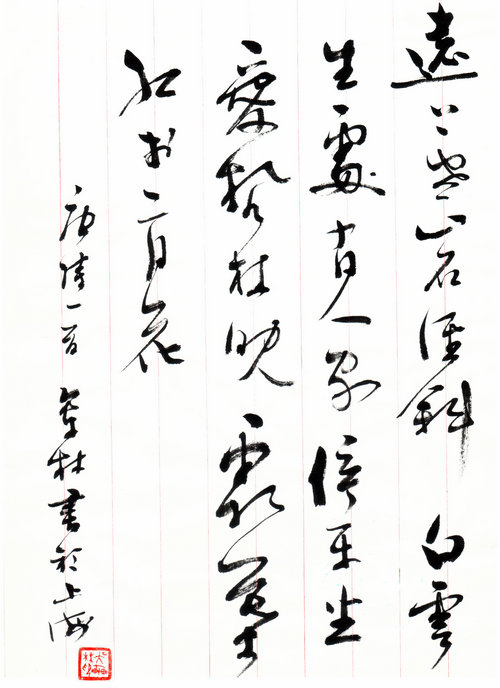 遠上寒山石徑斜 白雲
生處有人家 停車坐
愛楓林晚 霜葉
紅於二月花
唐詩一首 林書於上海